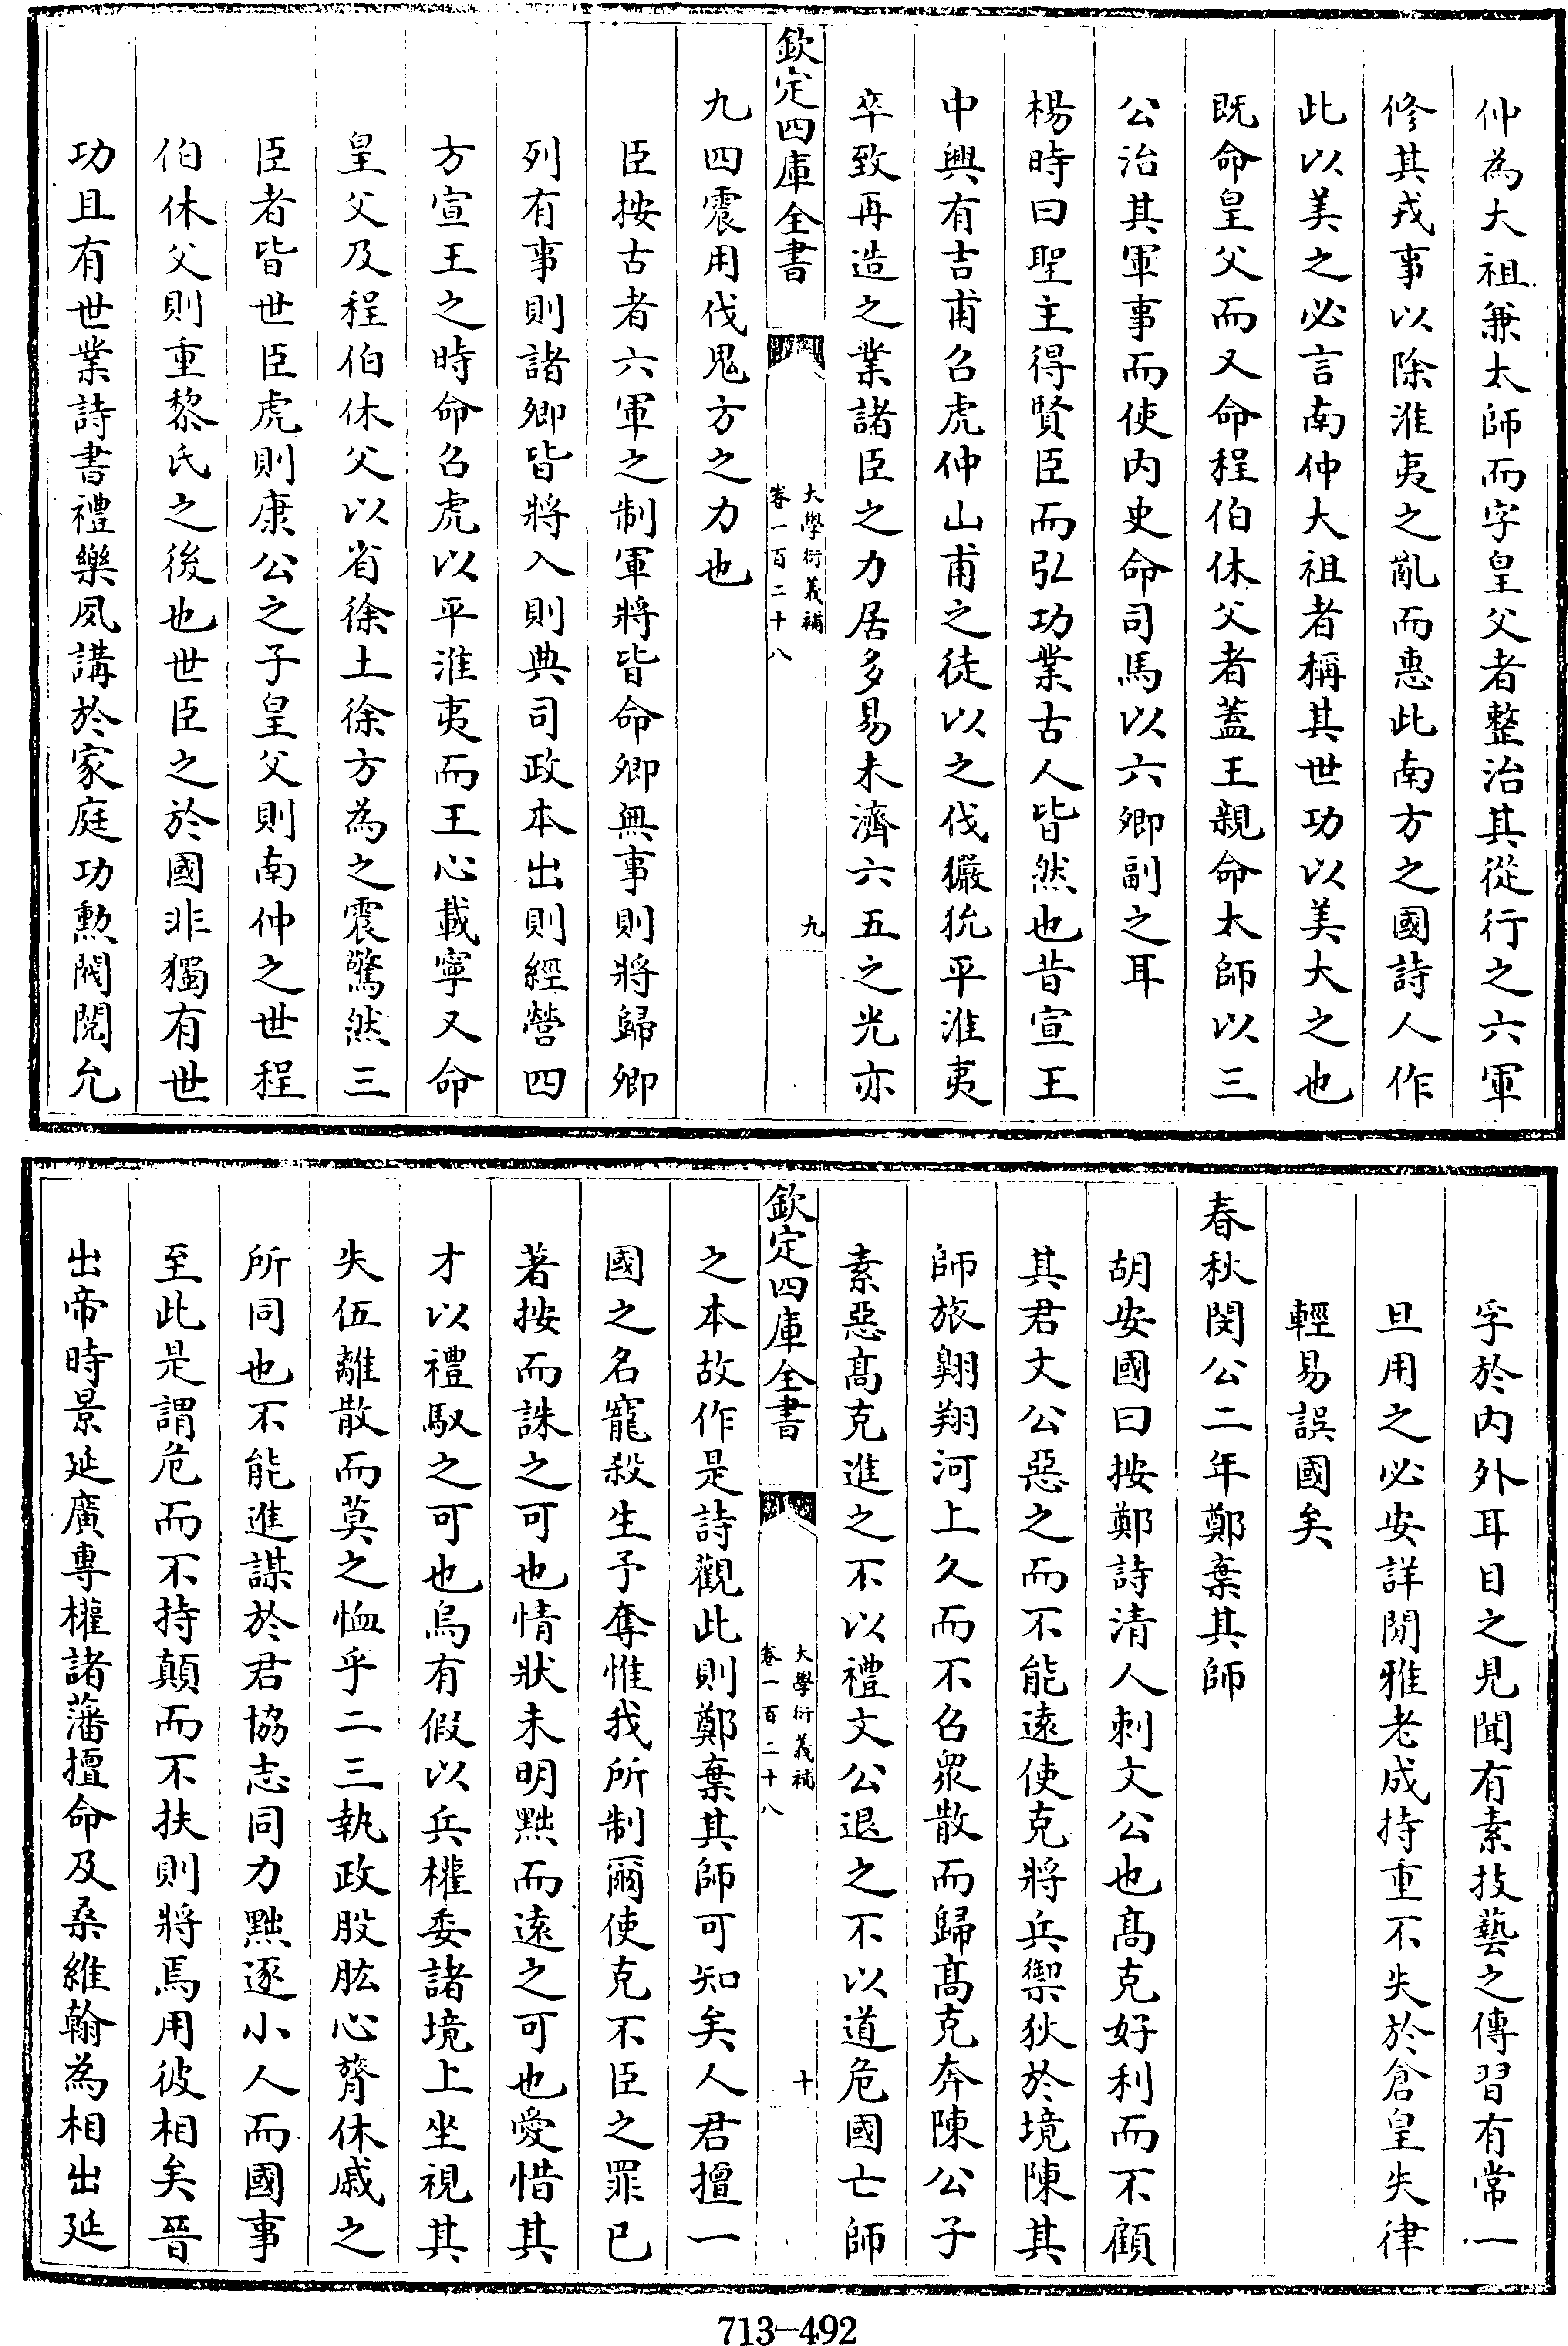 仲為大祖兼太師而字皇父者整治其從行之六軍
修其戎事以除淮夷之亂而惠此南方之國詩人作
此以美之必言南仲大祖者稱其世功以美大之也
既命皇父而又命程伯休父者蓋王親命太師以三
公治其軍事而使内史命司馬以六卿副之耳
楊時曰聖主得賢臣而弘功業古人皆然也昔宣王
中興有吉甫召虎仲山甫之徒以之伐玁狁平淮夷
卒致再造之業諸臣之力居多易未濟六五之光亦
欽定四庫全書
大學衍義補
卷一百二十八
九
九四震用伐鬼方之力也
臣按古者六軍之制軍將皆命卿無事則將歸卿
列有事則諸卿皆將入則典司政本出則經營四
方宣王之時命召虎以平淮夷而王心載寧又命
皇父及程伯休父以省徐土徐方為之震驚然三
臣者皆世臣虎則康公之子皇父則南仲之世程
伯休父則重黎氏之後也世臣之於國非獨有世
功且有世業詩書禮樂夙講於家庭功勲閥閱允
孚於内外耳目之見聞有素技藝之傳習有常一
旦用之必安詳閒雅老成持重不失於倉皇失律
輕易誤國矣
春秋閔公二年鄭棄其師
胡安國曰按鄭詩清人刺文公也髙克好利而不顧
其君文公惡之而不能逺使克將兵禦狄於境陳其
師旅翺翔河上久而不召衆散而歸髙克奔陳公子
素惡髙克進之不以禮文公退之不以道危國亡師
欽定四庫全書
大學衍義補
卷一百二十八
十
之本故作是詩觀此則鄭棄其師可知矣人君擅一
國之名寵殺生予奪惟我所制爾使克不臣之罪已
著按而誅之可也情狀未明黜而逺之可也愛惜其
才以禮馭之可也烏有假以兵權委諸境上坐視其
失伍離散而莫之恤乎二三執政股肱心膂休戚之
所同也不能進謀於君協志同力黜逐小人而國事
至此是謂危而不持顛而不扶則將焉用彼相矣晉
出帝時景延廣專權諸藩擅命及桑維翰為相出延
713-492